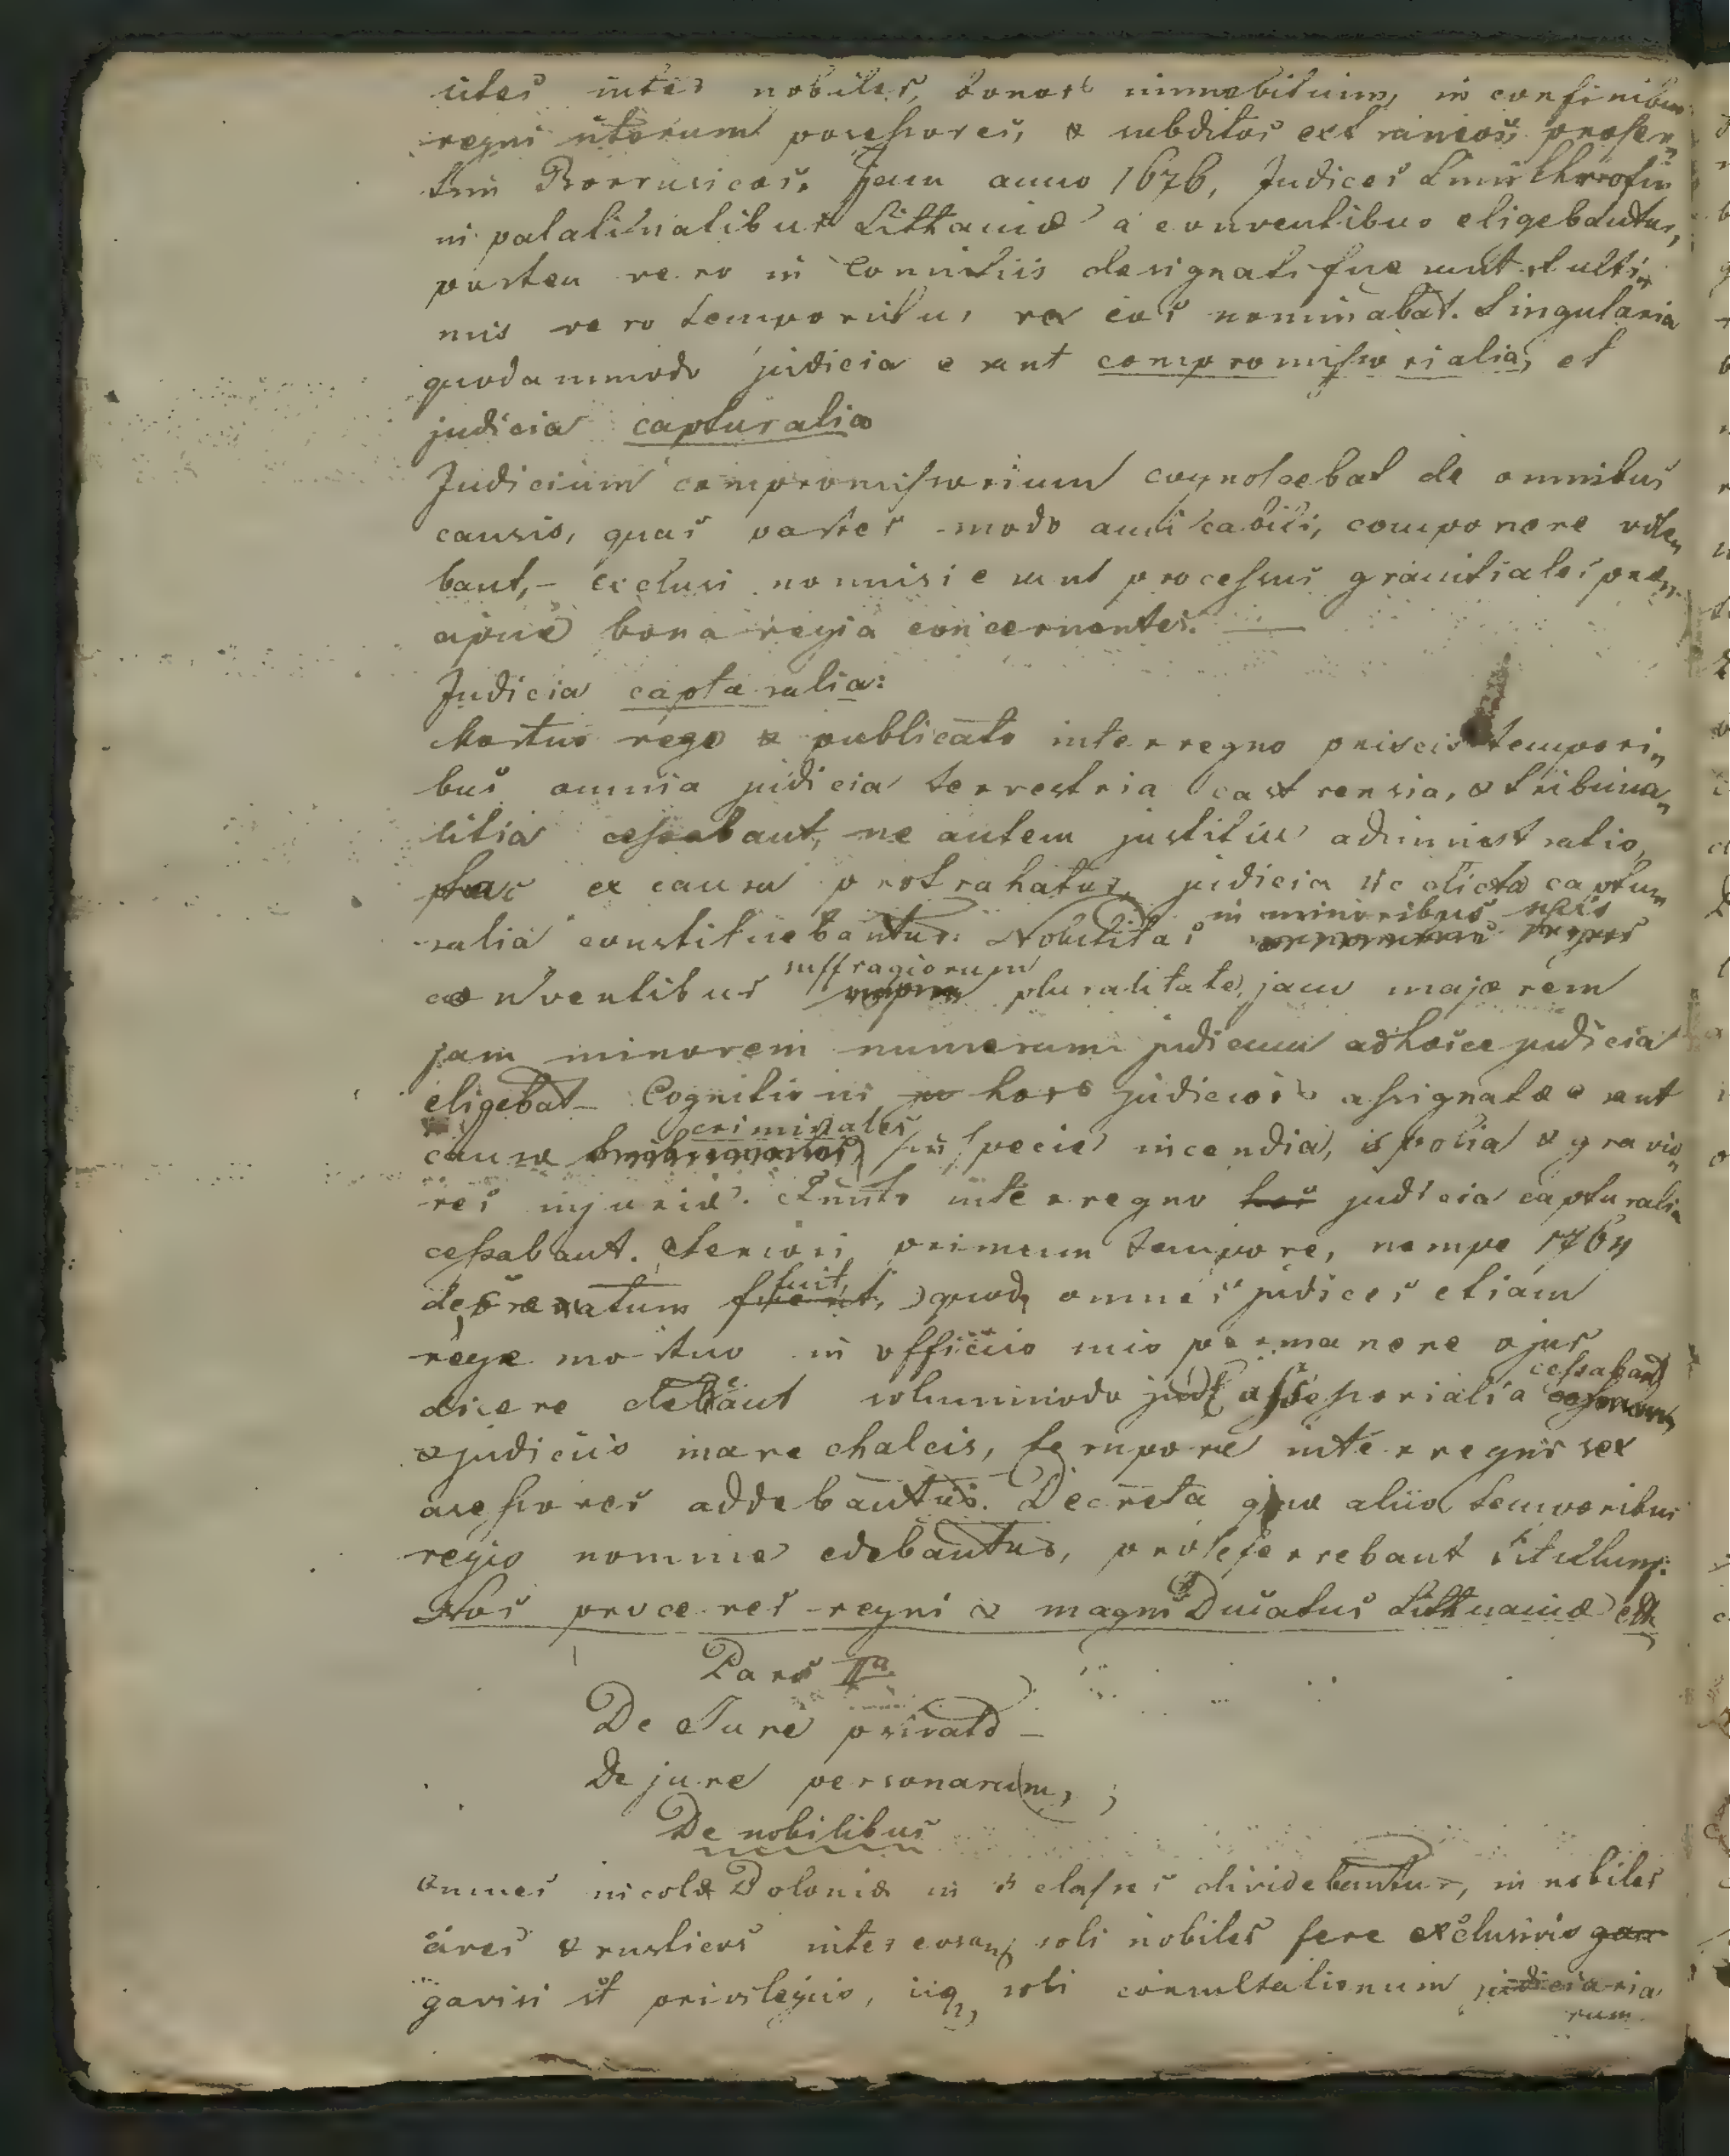 lites inter nobiles, bonor immobilium, in confinibus
regni sitorum possessores, & subditos extraneos præser„
tim Borrusicos. Jam anno 1676, Judices
in palatinatibus Litthaniæ a conventibus eligebantur,
postea vero in Comitiis designati fuerunt et ulti„
mis vero temporibus, rex eos nominabat. Singularia
quodammodo judicia erant compromissorialia, et
judicia capturalia
Judicium compromissorium cognoscebat de omnibus
causis, quas partes modo amicabili, componere vole„
bant, – exclusi nonnisi erant processus granitiales præ„
cipue bona regia concernentes. —
Judicia capturalia:
Mortuo rege & publicato interregno priscis tempori„
bus omnia judicia terrestria castrensia, & tribuna„
litia cessabant, ne autem justitiæ administratio,
hac ex causa protrahatur, judicia sic dicta captu„
ralia constituebantur. Nobilitas in minoribus suis
conventibus suffragiorum pluralitate, jam majorem
jam minorem numerum judicum ad hocce judicia
eligebat – Cognitioni hors judiciors assignatæ erant
causæ criminales in specie incendia, spolia & gravio„
res injuriæ. Finito interregno hos judicia capturalia
cessabant. Seriori primum tempore, nempe 1764
decretatum fuit, quod omnes judices etiam
rege mortuo in officiis suis permanere & jus
dicere debeant solummodo jud assessorialia cessabant
& judiciis marechalcis, tempore interregni sex
assessores addebantur. Decreta quæ aliis temporibus
regio nomine edebantur, præseferrebant titulum:
Nos proceres regni & magni Ducatus Litthuaniæ etc
Pars IIa
De Jure privato –
De jure personarum,
De nobilibus
Omnes incolæ Poloniæ in 3 classes dividebantur, in nobiles
cives & rusticos inter eosanq soli nobiles fere exclusivo gau
gavisi st privilegiis, iiq, soli consultationum judiciaria
rum